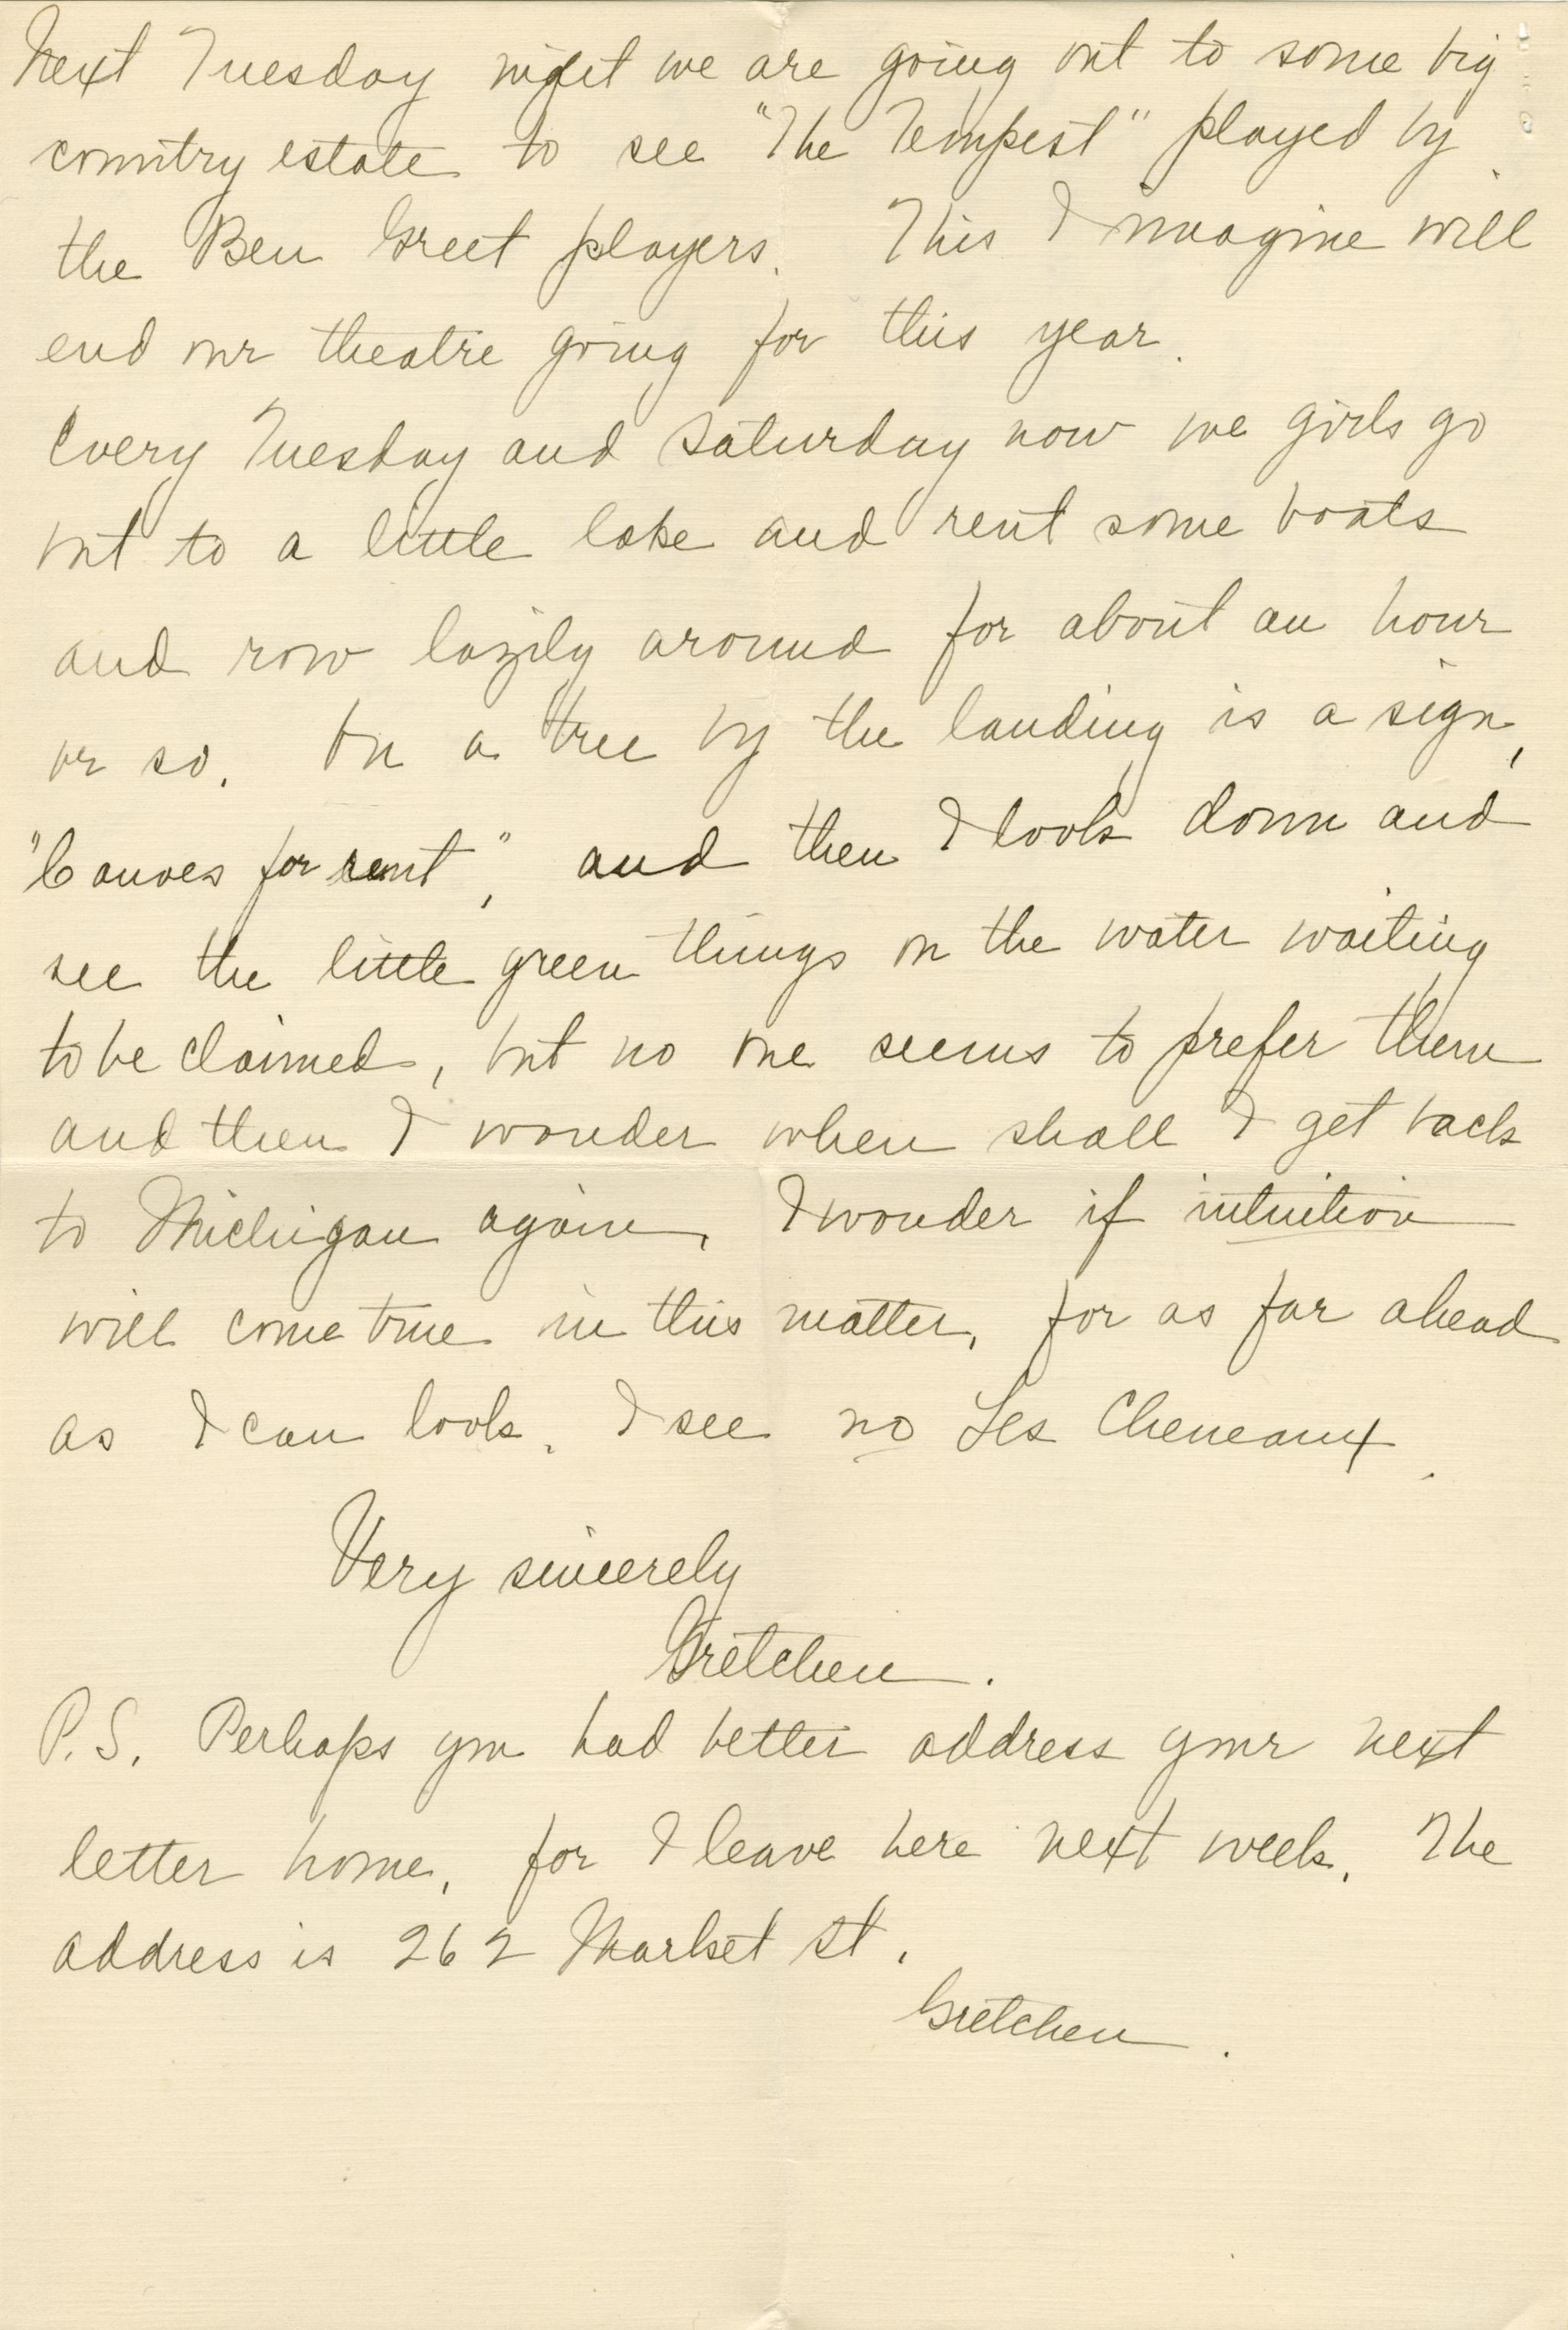 Next Tuesday night we are going out to some big
country estate to see "The Tempest" played by
the Ben Greet players. This I imagine will
end our theatre going for this year.
Every Tuesday and Saturday now we girls go
out to a little lake and rent some boats
and row lazily around for about an hour
or so. On a tree by the landing is a sign,
"Canoes for rent", and then I look down and
see the little green things on the water waiting
to be claimed, but no one seems to prefer them
and then I wonder when shall I get back
to Michigan again, I wonder if intuition
will come true in this matter, for as far ahead
as I can look, I see no Les Cheneaux.
Very sincerely
Gretchen.
P.S. Perhaps you had better address your next
letter home, for I leave here next week. The
address is 262 Market St.
Gretchen.